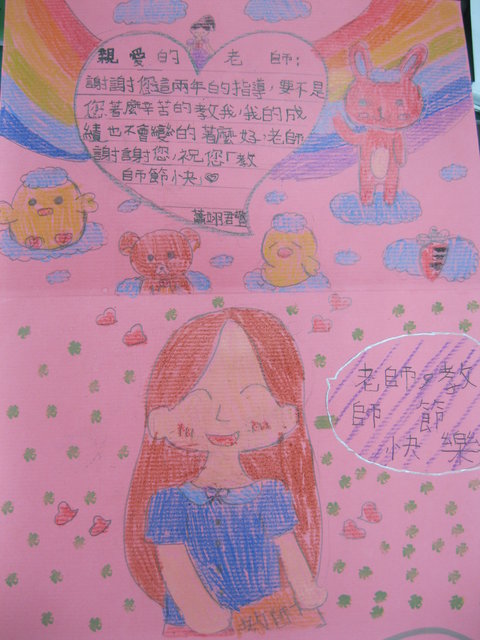 親愛的老師:
謝謝您這兩年的指導,要不是
您著麼辛苦的教我,我的成
績也不會變的著麼好,老師
謝謝您,祝您「教
師節快」
老師,教
師節
快樂